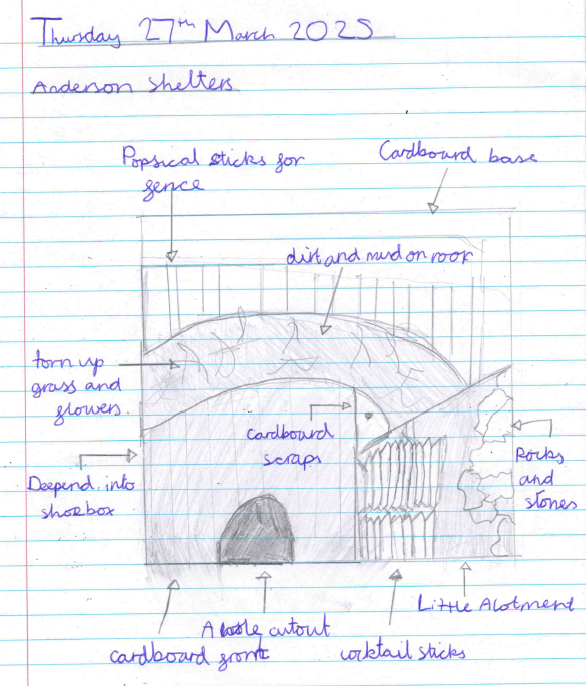 Thursday 27th March 2025
Anderson shelters
Popsical sticks for
fence
Cardboard base
dirt and mud on roof
torn up
grass and
flowers.
cardboard
scraps
Deepend into
shoebox
Rocks
and
stones
Little Alotment
A hole cutout
cardboard front
cocktail sticks